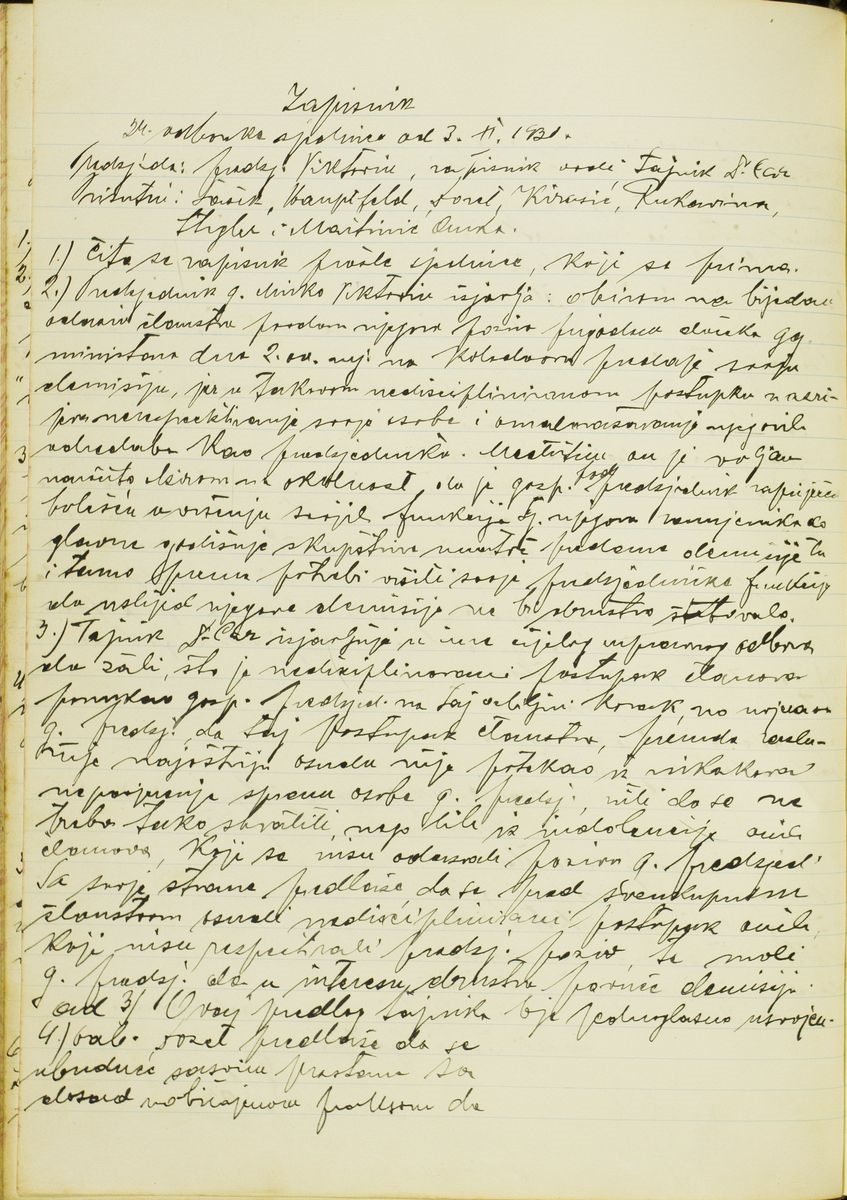 Zapisnik
odborske sjednice od 3. XI. 1930.
Predsjeda: predsj. Viktorin, zapisnik vodi: Tajnik Dr. Car
Prisutni: Šoštik, Hauptfeld, Kirasić, Rukavina,
i Martinić
1.) Čita se zapisnik prošle sjednice, koji se prima.
2.) Predsjednik g. Mirko Viktorin izjavlja: obzirom na bijedan
odaziv članstva povodom njegova poziva prigodom dočeka gg.
ministara dne 2. ov. mj. na kolodvoru predaje svoju
demisiju, jer u takovom nediscipliniranom postupku nazri-
jeva nerespektiranje svoje osobe i omalovažavanje njegovih
odredaba kao predsjednika. Međutim on je voljan
naročito obzirom na okolnost da je gosp. podpredsjednik zapriječen
bolešću u vršenju svojih funkcija tj. njegova zamjenika do
glavne godišnje skupštine unatoč predane demisije tu
i tamo prema potrebi vršiti svoje predsjedničke funkcije
da uslijed njegove demisije ne bi društvo štetovalo.
3.) Tajnik Dr. Car izjavljuje u ime cijelog upravnog odbora
da žali, što je nedisciplinovani postupak članova
ponukao gosp. predsjed. na taj ozbiljni korak, no uvjerava
g. predsj. da taj postupak članstva, premda zaslu-
žuje najoštriju osudu nije potekao iz nikakova
nepovjerenja sprema osobe g. predsj., niti da se ne
treba tako shvatiti, nego bilo iz indolencije onih
članova, koji se nisu odazvali pozivu g. predsjed.
Sa svoje strane predlaže, da se pred sveukupnim
članstvom osudi nedisciplinirani postupak onih,
koji nisu respektirali predsj. poziv, te moli
g. predsj. da u interesu društva povuče demisiju.
ad 3) Ovaj predlog tajnika bje jednoglasno usvojen.
4.) odb. predlaže da se
ubuduće sasvim prestane sa
dosad uobičajenom praksom da